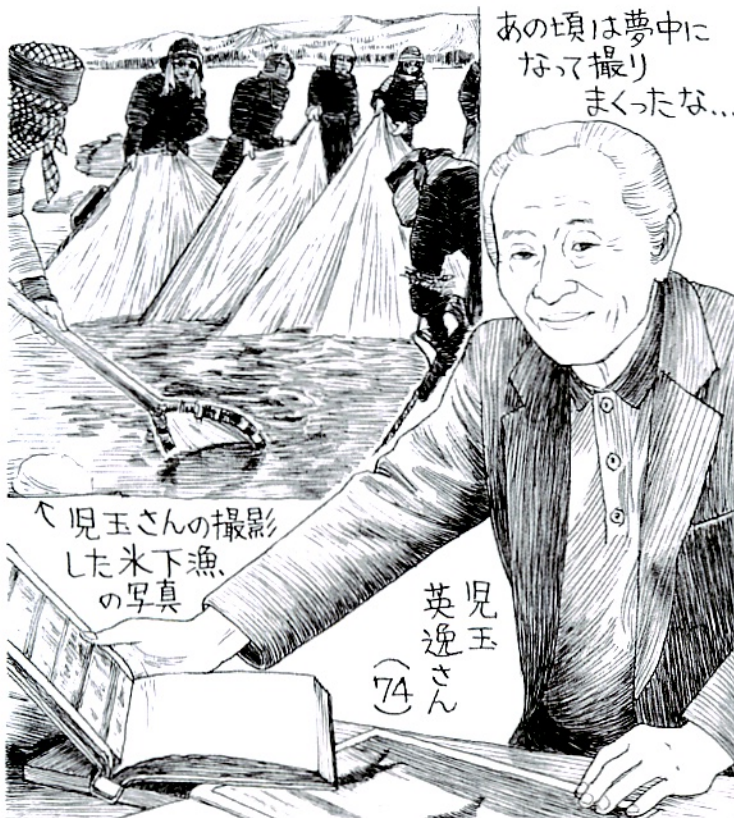 あの頃は夢中に
なって撮り
まくったな…
↖児玉さんの撮影
した氷下漁
の写真
児玉
英逸さん
(74)